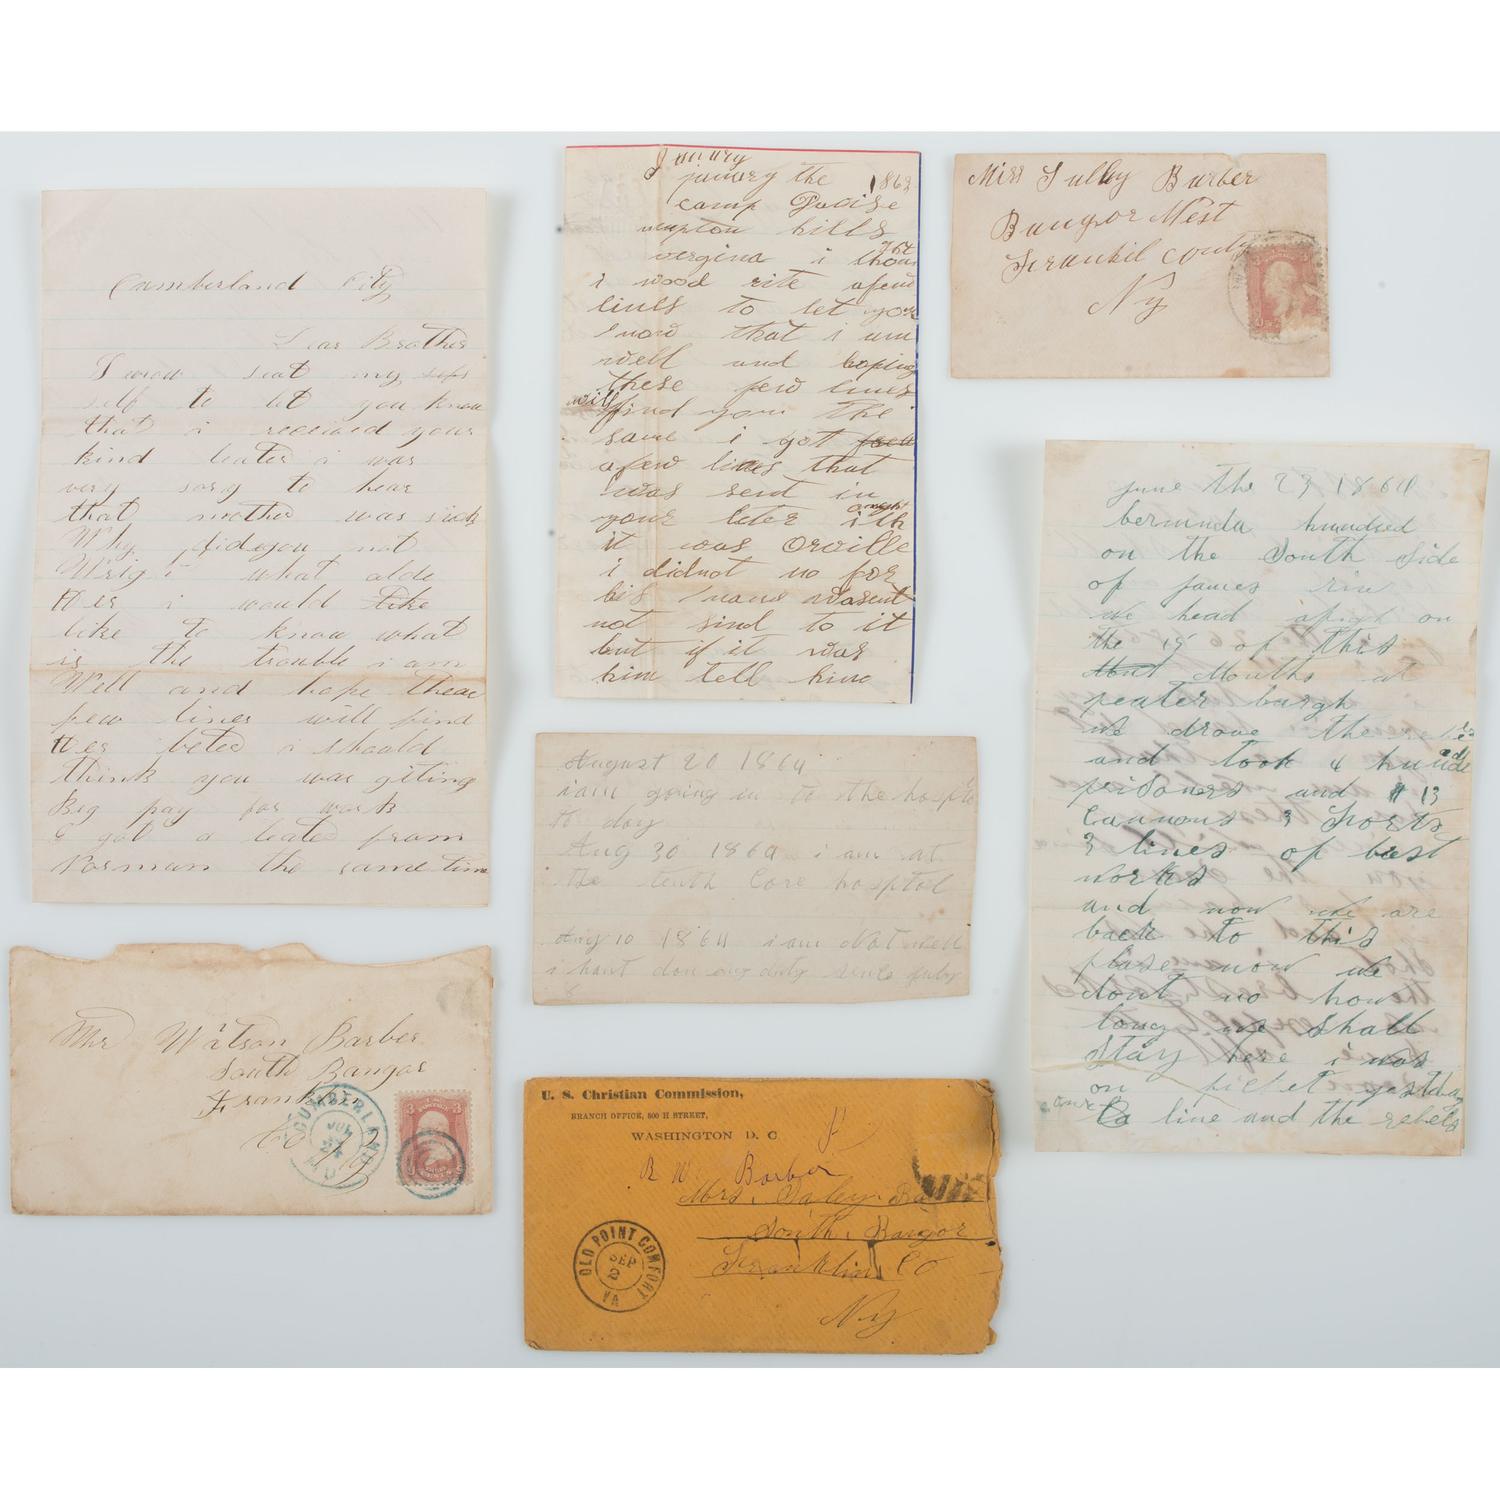 Cumberland City
Dear Brother
I now seat my
self to let you know
that i received your
kind leater i was
very sory to hear
that mother was sick
Why didyou not
Wrigt what alds
Her i would like
like to know what
is the trouble i am
Well and hope these
few lines will find
Her beter i should
think you was giting
Big pay for work
I got a leater from
Norman the same time
Mr Watson Barber
South Bangor
Franklin
Co NY
CUMBERLAND
JUL
MD
3 3
janury the 1863
camp
unpton hills
vergina i thou
ght
i wood rite afew
lines to let you
know that i am
well and hoping
these few lines
will
find you the
same i got
afew lines that
was sent in
your leter
it was Orville
i didnot no for
his name wasent
not sind to it
but if it was
him tell him
August 20 1864
iam going in to the hospit
to day
Aug 30 1864 i am at
the tenth Core hosptol
Aug 10 1864 iam Not well
i hant don any duty sence July
8
U. S. Christian Commission,
BRANCH OFFICE, 500 H STREET,
WASHINGTON D. C
R W. Barber
Mrs. Saley. Ba
South. Bangor
Franklin CO
Ny
OLD POINT COMFORT
SEP
2
VA
Miss Sulley Barber
Bangor West
Frankil couty
Ny
june the 23 1864
bermuda hundred
on the South side
of james riv
we head afight on
the 15 of this
Months at
peater burgh
we drove the rebe
ls
and took 4 hund
prisoners and 13
Cannons 3 Forts
3 lines of bust
works
and now we are
back to this
plase now we
dont no how
long we shall
stay here i was
on picket yestday
our
line and the rebels